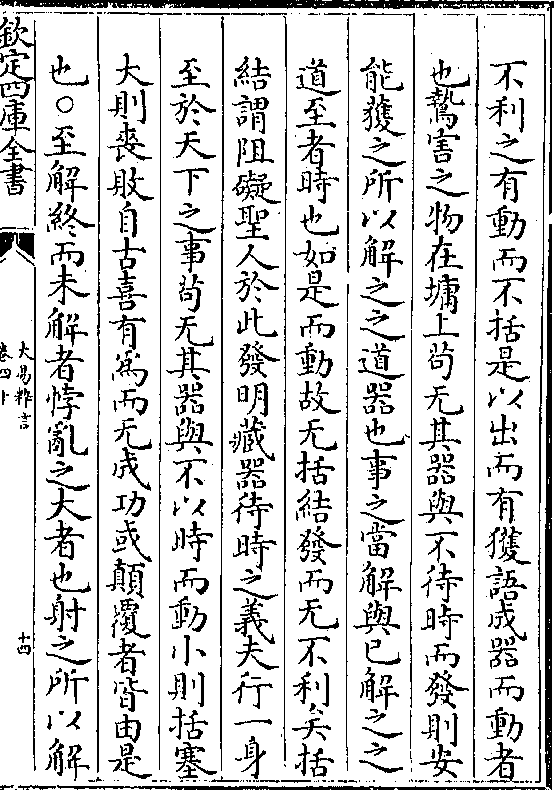 不利之有動而不括是以出而有獲語成器而動者
也鷙害之物在墉上茍无其器與不待時而發則安
能獲之所以解之之道器也事之當解與已解之之
道至者時也如是而動故无括結發而无不利矣括
結謂阻礙聖人於此發明藏器待時之義夫行一身
至於天下之事茍无其器與不以時而動小則括塞
大則喪敗自古喜有為而无成功或顛覆者皆由是
也○至解終而未解者悖亂之大者也射之所以解
欽定四庫全書
大易粹言
卷四十
十四